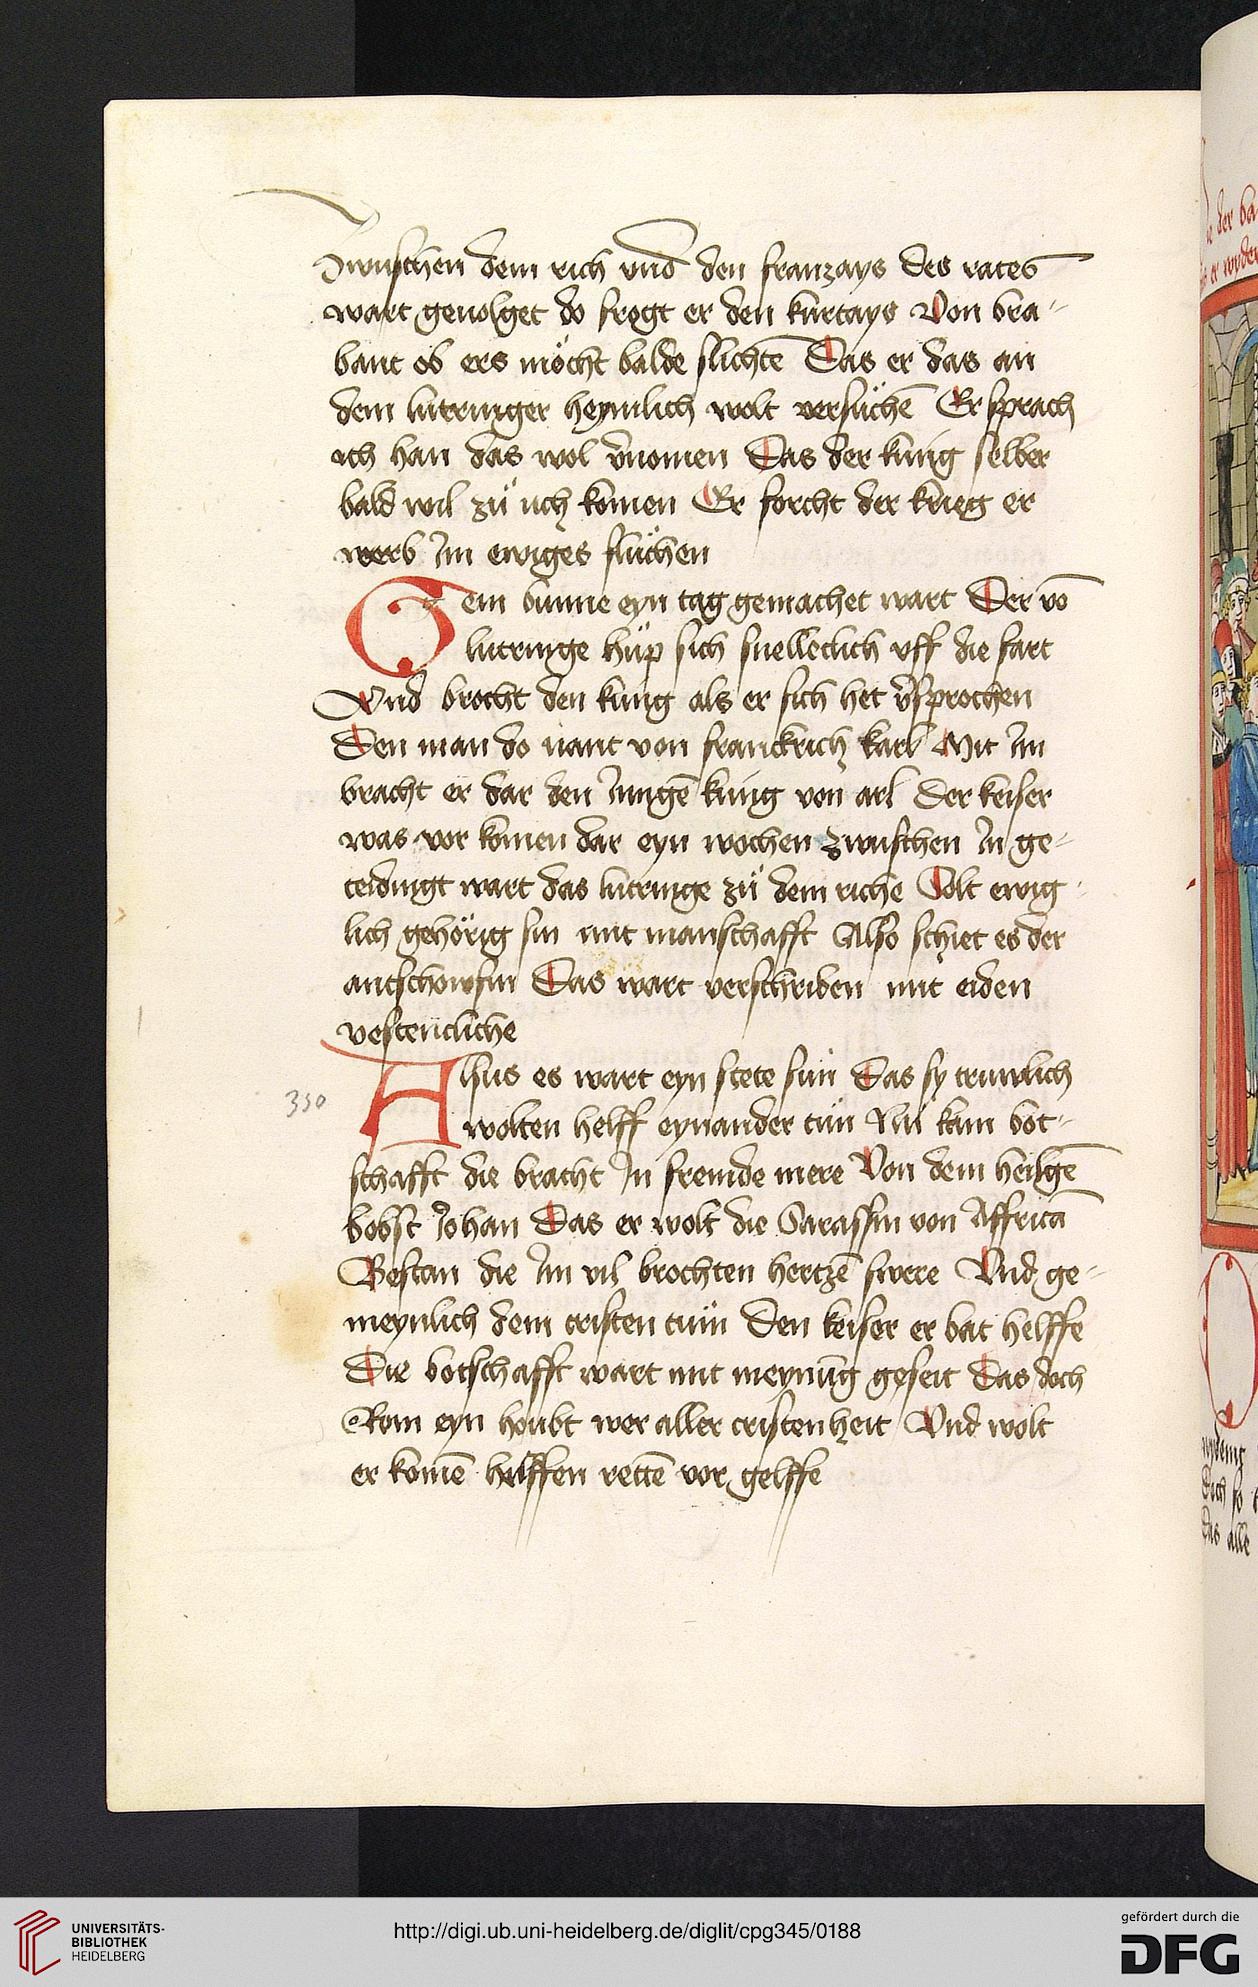 Zwuschen dem rich vnd den franzays Des rates
wart geuolget do fregt er den kurtays Von bra-
bant ob ers möcht balde slichtē Das er das an
dem lutringer heymlich wolt versüchē Er sprach
ich han das wol v̄nomen Das der kunig selber
bald wil zü uch komen Er forcht der krieg er
werb Im ewiges flüchen
O ein bunne eyn tag gemachet wart Der vō
lutringe hüp sich snelleclich vff die fart
Vnd brocht den kunig als er sich het v̄sprochen
Den man do nant von franckrich karl Mit Im
bracht er dar den Jungē kunig von arl Der keiser
was vor komen dar eyn wochen zwuschen In ge-
teidingt wart das lutringe zü dem riche Solt ewig
lich gehörig sin mit manschafft Also schiet es der
antschowsin Das wart verschriben mit eiden
vestencliche
Alsus es wart eyn stete sün Das sy truwlich
350
wolten helff eynander tün Nü kam bot-
schafft die bracht In fremde mere Von dem heilgē
bobst Johan Das er wolt die Sarassin von Affricā
Bestan die Im vil brochten hertzē swere Vnd ge-
meynlich dem cristen tum Den keiser er bat helffe
Die botschafft wart mit meynūg geseit Das doch
Rom eyn houbt wer aller cristenheit Vnd wolt
er komē helffen rettē vor gelffe
der ba
er wyder
Doch so
Das alle
UNIVERSITÄTS-
BIBLIOTHEK
HEIDELBERG
http://digi.ub.uni-heidelberg.de/diglit/cpg345/0188
gefördert durch die
DFG